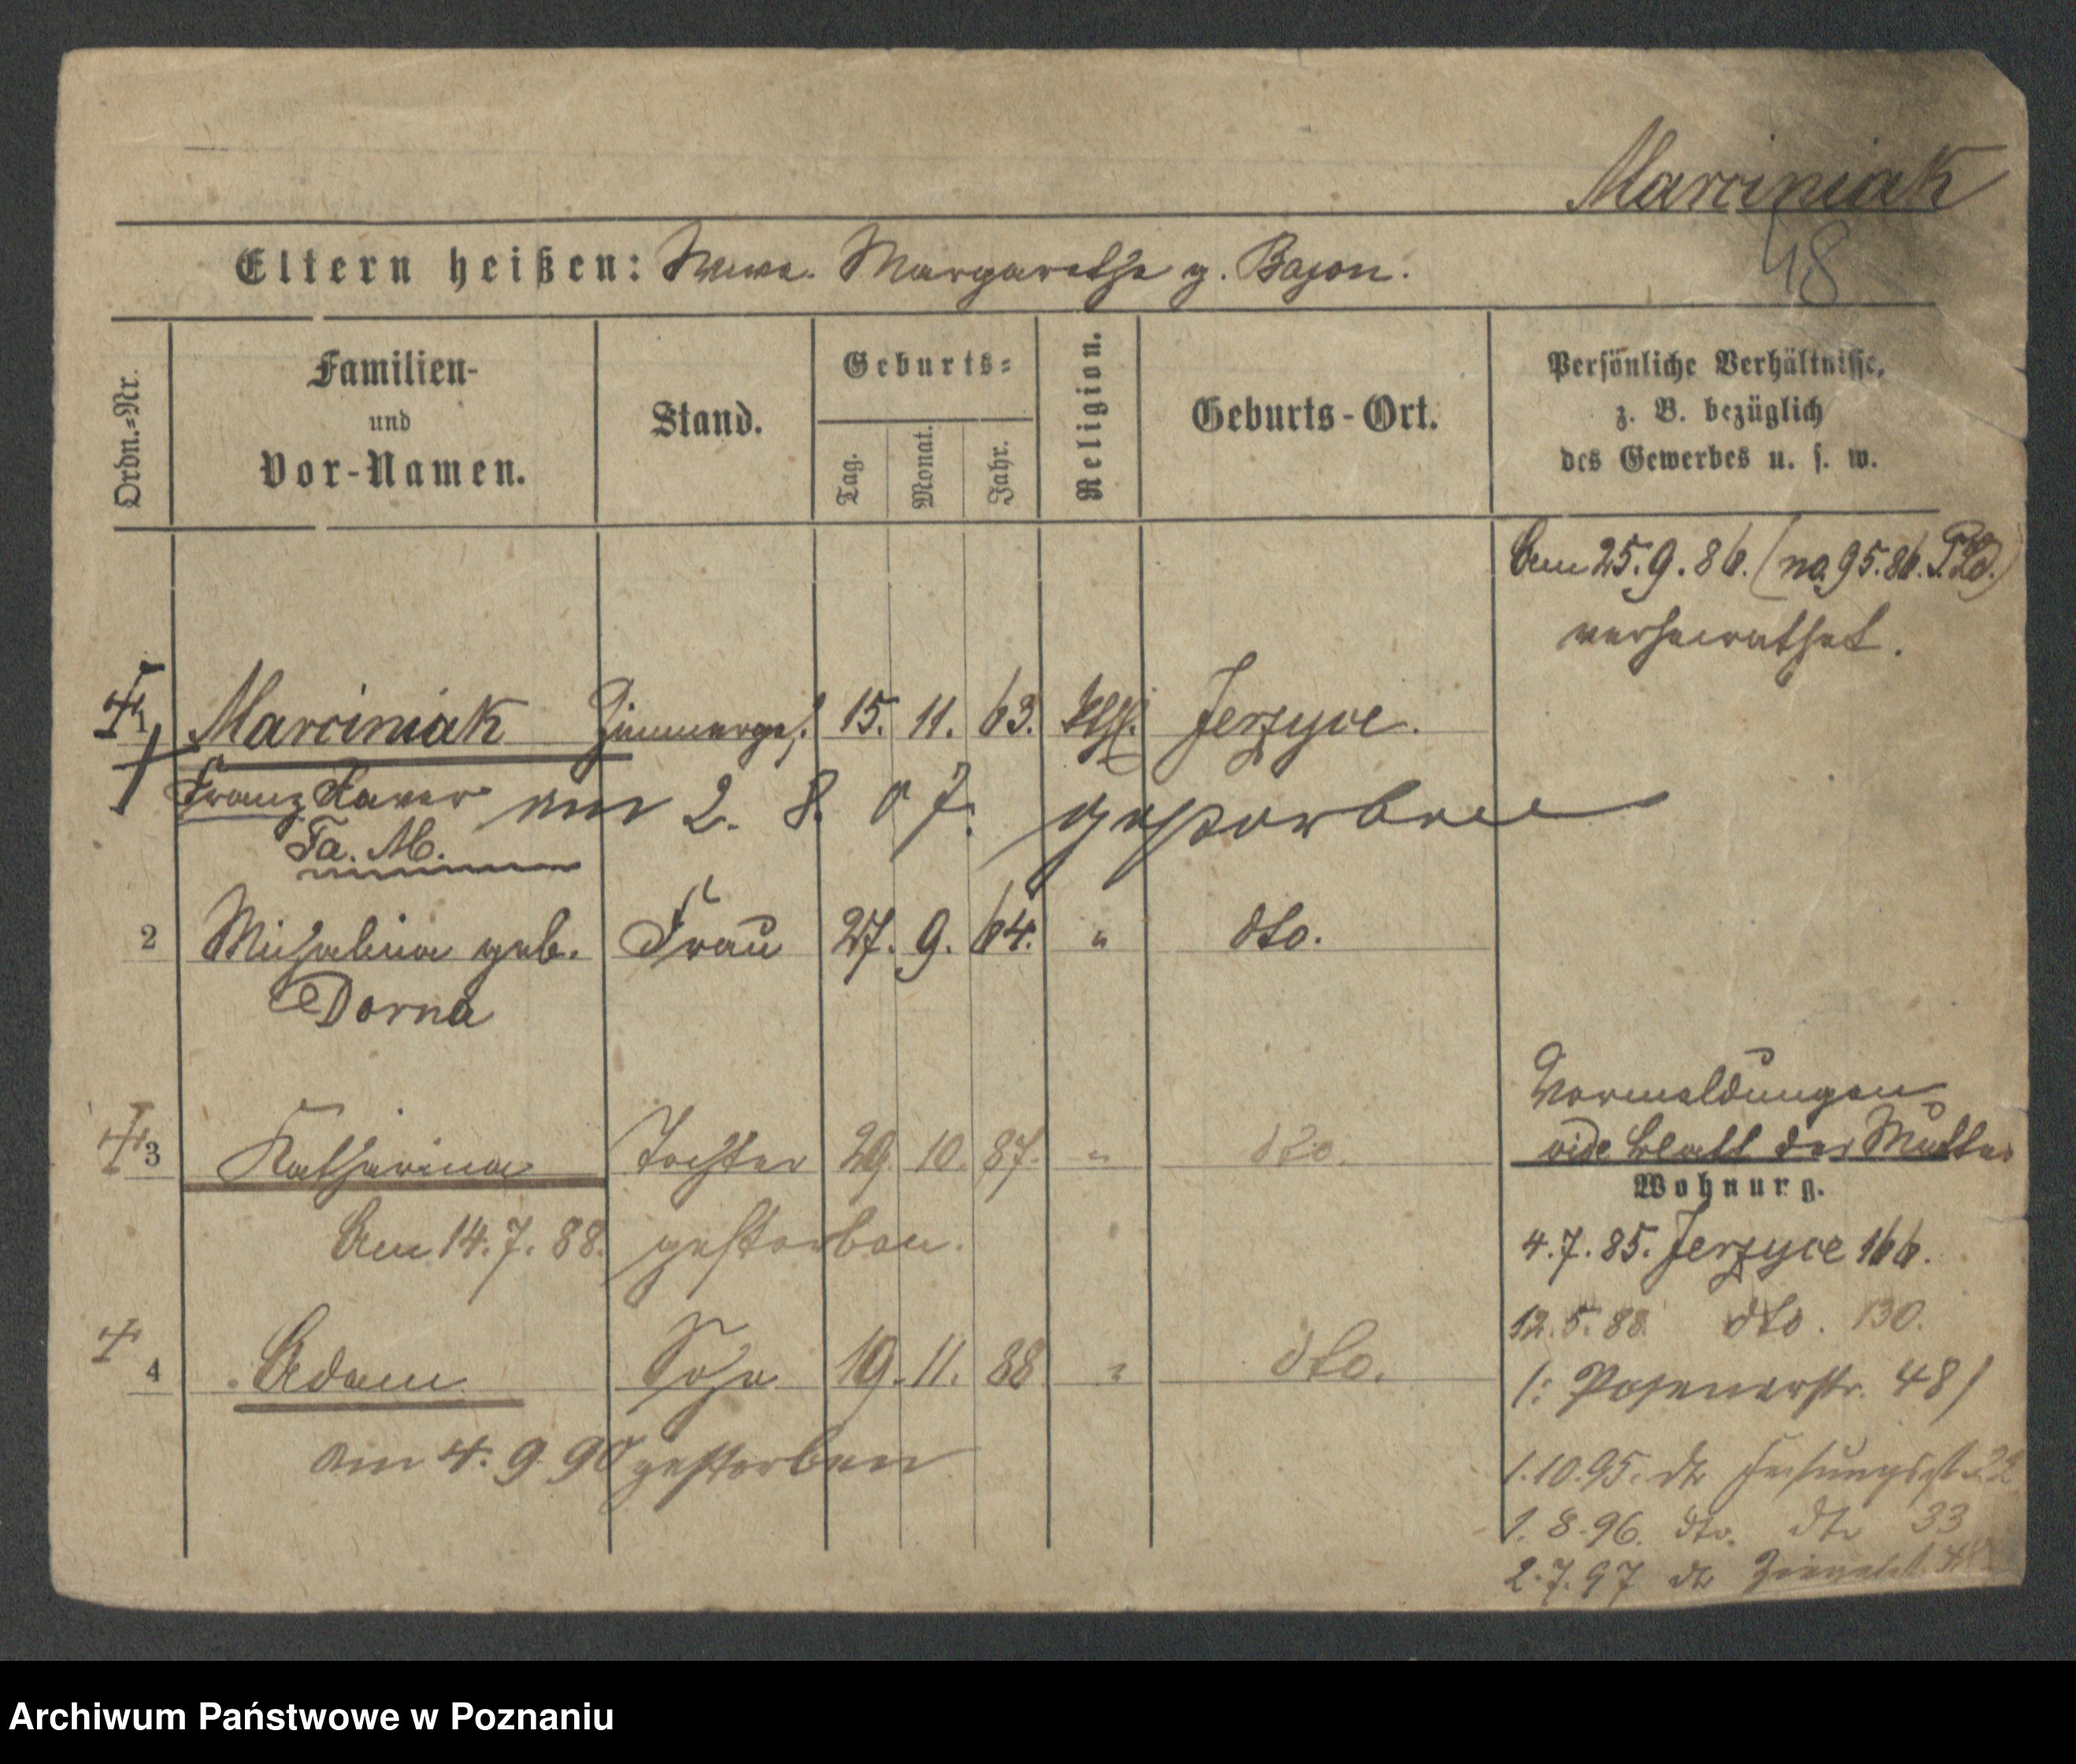 Marciniak
48
Eltern heißen: Wwe. Margarethe g. Bajon.
Ordn.=Nr.
Familien-
und
Vor-Namen.
Stand.
Geburts=
Tag. Monat. Jahr.
Religion.
Geburts-Ort.
Persönliche Verhältnisse,
z. B. bezüglich
des Gewerbes u. s. w.
Am 25.9.86. (no 95.86.
verheirathet.
1 Marciniak Zimmerges. 15. 11. 63. kth. Jerzyce.
Franz Xaver am 2. 8. 07. gestorben
Fa. M.
2 Michalina geb. Frau 27. 9. 64. " dto.
Dorna
Vormeldungen
3 Katharina Tochter 29. 10. 87. " dto. vide Blatt der Mutter
Wohnung.
Am 14.7.88. gestorben.
4.7.85. Jerzyce 166.
12.5.88 dto. 130.
4 Adam Sohn 19. 11. 88 " dto.
(: Posenerstr. 48)
am 4. 9. 90 gestorben
1.10.95. dto 22
1. 8. 96. dto. dto 33
2.7.97 dto
Archiwum Państwowe w Poznaniu